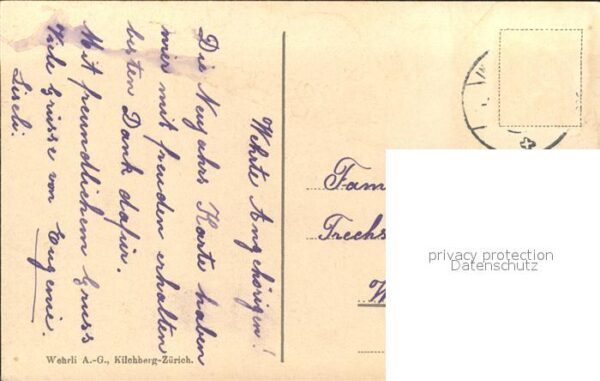 Werte Angehörigen!
Die Neujahrs Karte haben
wir mit freuden erhalten
besten Dank dafür.
Mit freundlichem Gruss
Viele Grüsse von Eugenie.
Liseli.
Wehrli A.-G., Kilchberg-Zürich.
Fam
Frechs
W
privacy protection
Datenschutz